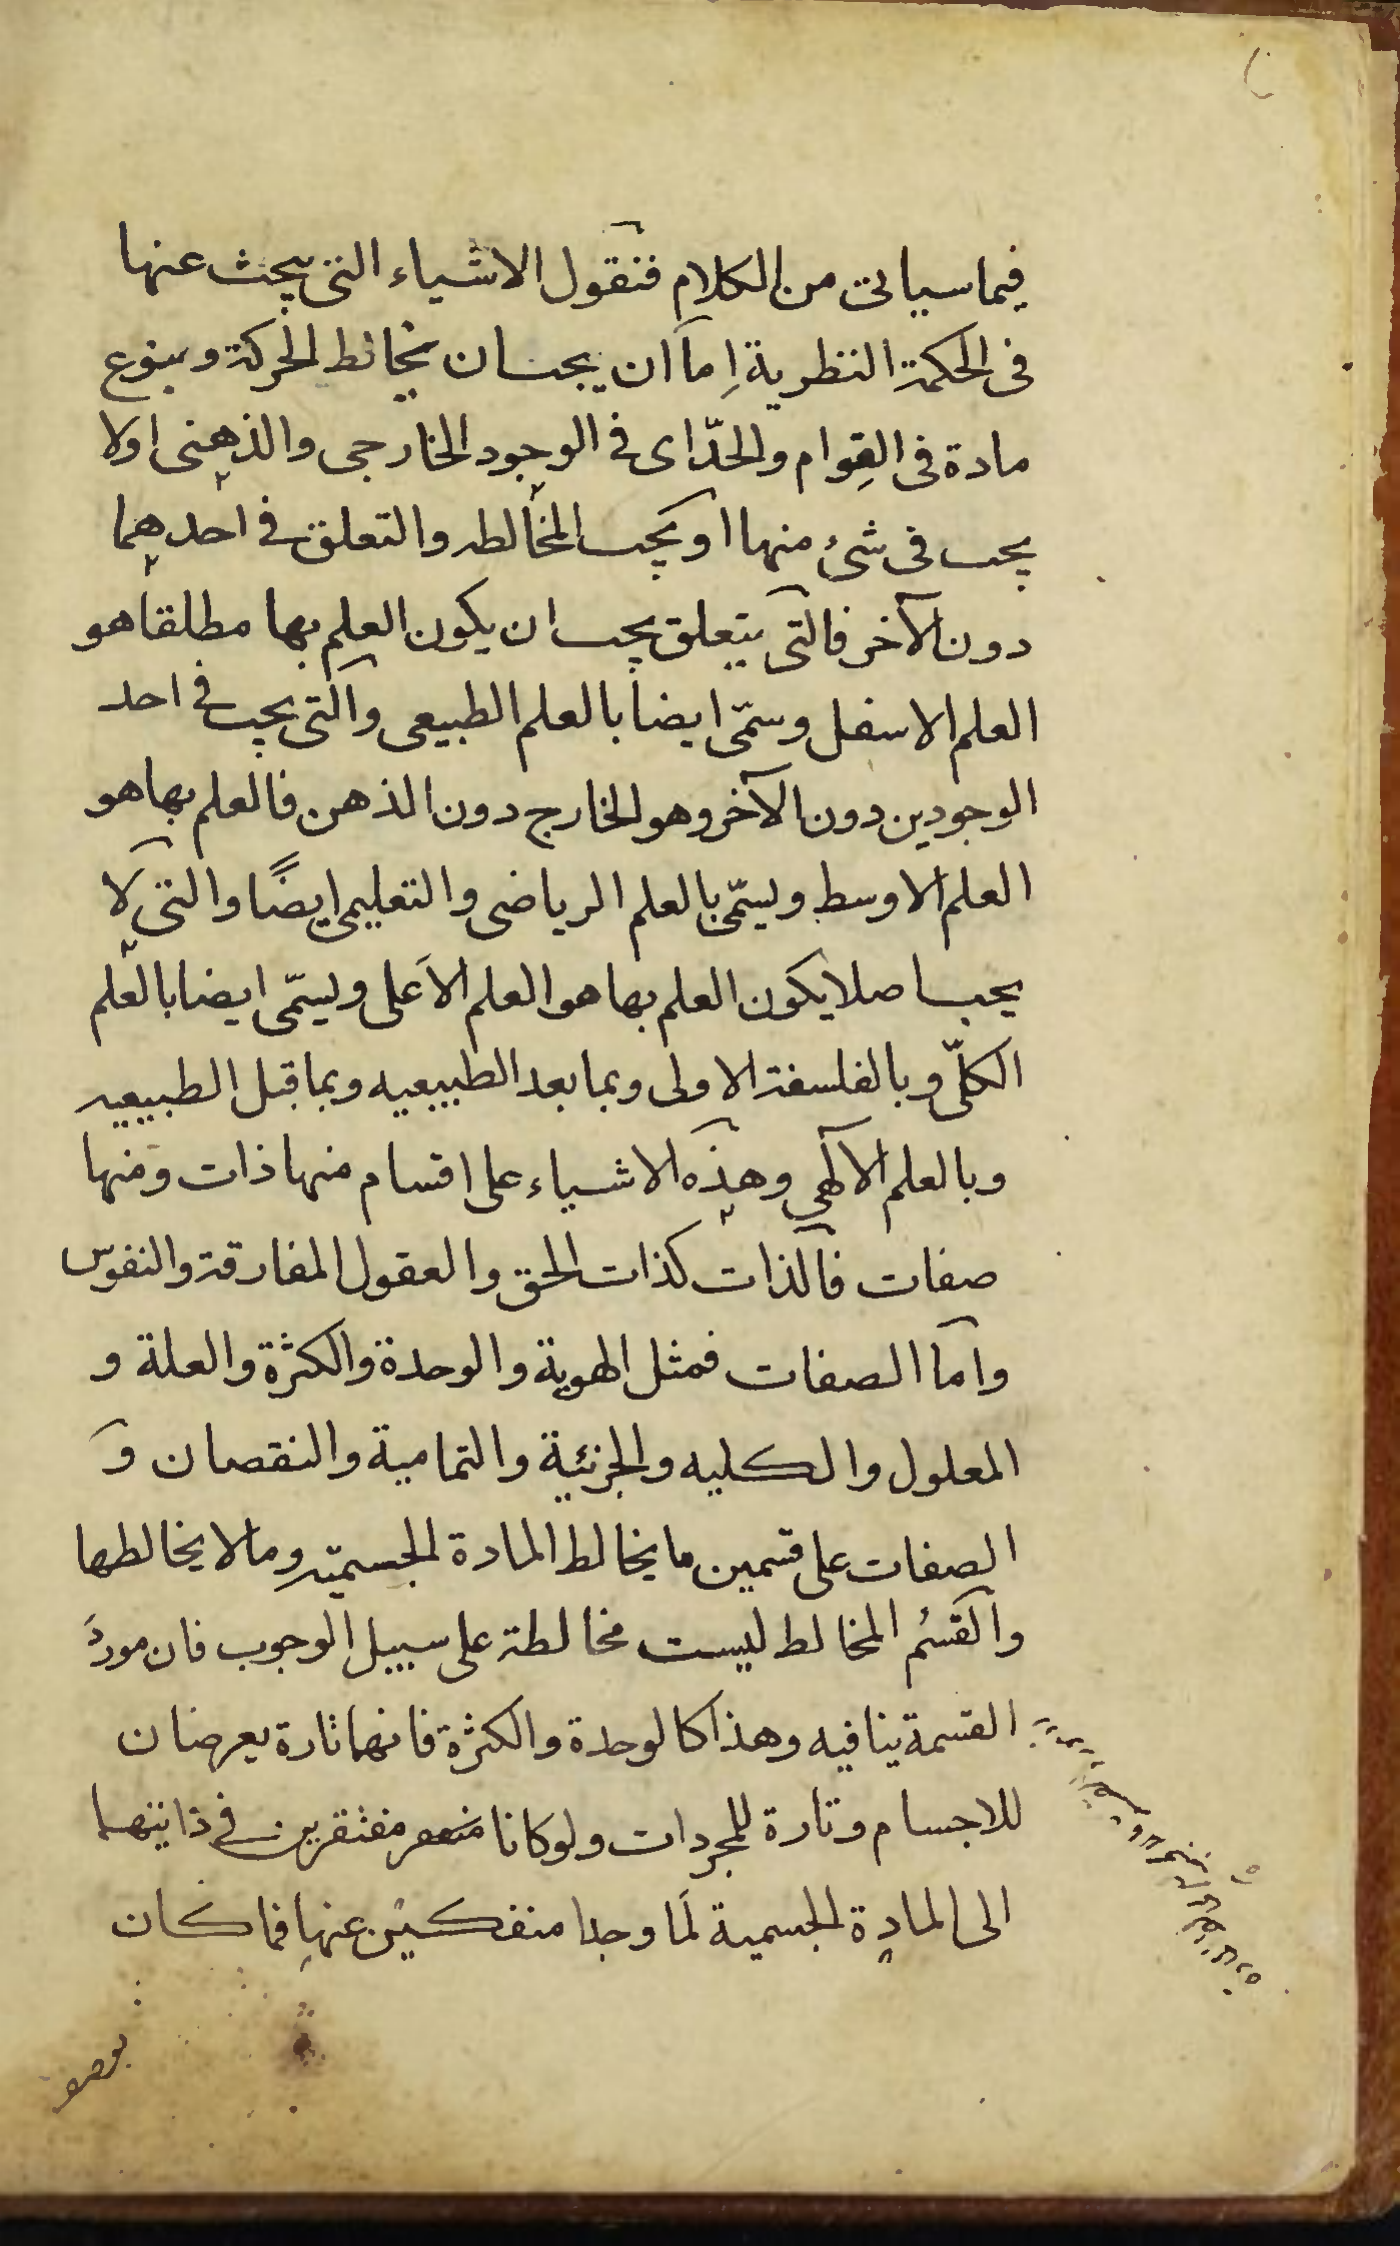 فيما سيأتى من الكلام فنقول الاشياء التى يبحث عنها
فى الحكمة النظرية اِما ان يجب ان يخالط الحركة و
مادة فى القِوام والحدّ اى فى الوجود الخارجى والذهنى اولا
يجب فى شئ منها او يجب المخالطه والتعلق فى احدهما
دون الآخر فالتى يتعلق يجب ان يكون العلم بها مطلقا هو
العلم الاسفل وسمّى ايضا بالعلم الطبيعى والتى يجب فى احد
الوجودين دون الآخر وهو الخارج دون الذهن فالعلم بها هو
العلم الاوسط ويسمّى بالعلم الرياضى والتعليمى ايضًا والتى لا
يجب اصلا يكون العلم بها هو العلم الاَعلى ويسمّى ايضا بالعلم
الكلّى وبالفلسفة الاولى وبما بعد الطبيعيه وبما قبل الطبيعيه
وبالعلم الآلهى وهذه الاشياء على اقسام منها ذات ومنها
صفات فالذات كذات الحق والعقول المفارقة والنفوس
واما الصفات فمثل الهوية والوحدة والكثرة والعلة و
المعلول والكليه والجزئية والتمامية والنقصان و
الصفات على قسمين ما يخالط المادة الجسميّه وما لا يخالطها
والقسُم المخالط ليست مخالطة على سبيل الوجوب فان موردَ
القسمة ينافيه وهذا كالوحدة والكثرة فانهما تارة يعرضان
للاجسام وتارة للمجردات ولو كانا مفتقرين فى ذاتيهما
الى المادة الجسمية لَما وجدا منفكين عنها فما كان